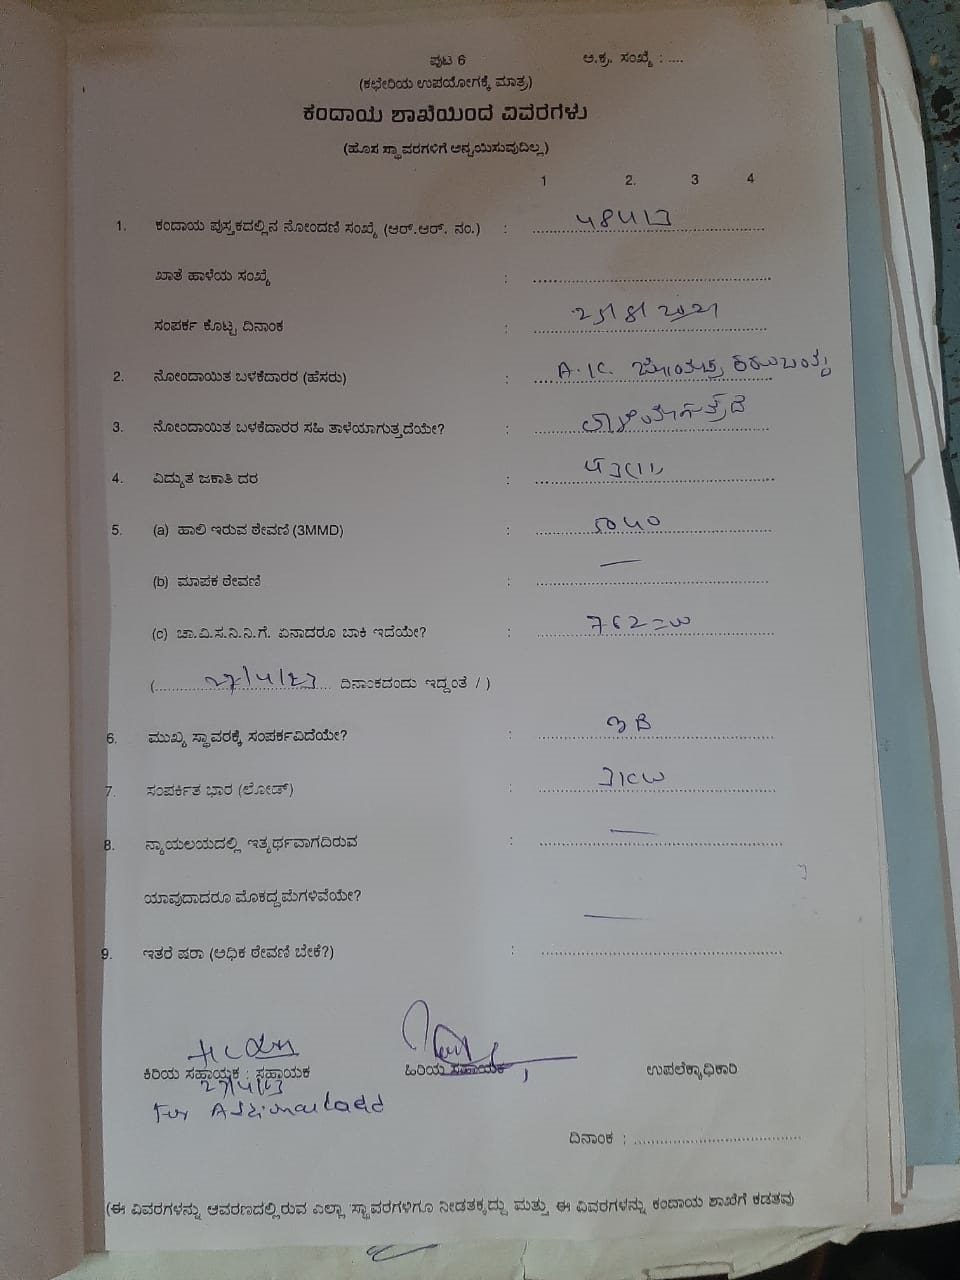 ಪುಟ 6
ಅ.ಕ್ರ. ಸಂಖ್ಯೆ : ....
(ಕಛೇರಿಯ ಉಪಯೋಗಕ್ಕೆ ಮಾತ್ರ)
ಕಂದಾಯ ಶಾಖೆಯಿಂದ ವಿವರಗಳು
(ಹೊಸ ಸ್ಥಾವರಗಳಿಗೆ ಅನ್ವಯಿಸುವುದಿಲ್ಲ)
1 2. 3 4
1. ಕಂದಾಯ ಪುಸ್ತಕದಲ್ಲಿನ ನೋಂದಣಿ ಸಂಖ್ಯೆ (ಆರ್.ಆರ್. ನಂ.) :
ಖಾತೆ ಹಾಳೆಯ ಸಂಖ್ಯೆ :
ಸಂಪರ್ಕ ಕೊಟ್ಟ ದಿನಾಂಕ : 25/8/2021
2. ನೋಂದಾಯಿತ ಬಳಕೆದಾರರ (ಹೆಸರು) : A.K.
3. ನೋಂದಾಯಿತ ಬಳಕೆದಾರರ ಸಹಿ ತಾಳೆಯಾಗುತ್ತದೆಯೇ? : ತಾಳೆಯಾಗುತ್ತದೆ
4. ವಿದ್ಯುತ ಜಕಾತಿ ದರ :
5. (a) ಹಾಲಿ ಇರುವ ಠೇವಣಿ (3MMD) : 5040
(b) ಮಾಪಕ ಠೇವಣಿ : —
(c) ಚಾ.ವಿ.ಸ.ನಿ.ನಿ.ಗೆ. ಏನಾದರೂ ಬಾಕಿ ಇದೆಯೇ? : 762=00
( 27/4/23 ದಿನಾಂಕದಂದು ಇದ್ದಂತೆ / )
6. ಮುಖ್ಯ ಸ್ಥಾವರಕ್ಕೆ ಸಂಪರ್ಕವಿದೆಯೇ? : 3B
7. ಸಂಪರ್ಕಿತ ಭಾರ (ಲೋಡ್) : 3KW
8. ನ್ಯಾಯಲಯದಲ್ಲಿ ಇತ್ಯರ್ಥವಾಗದಿರುವ : —
ಯಾವುದಾದರೂ ಮೊಕದ್ದಮೆಗಳಿವೆಯೇ?
9. ಇತರೆ ಷರಾ (ಅಧಿಕ ಠೇವಣಿ ಬೇಕೆ?) : —
ಕಿರಿಯ ಸಹಾಯಕ : ಸಹಾಯಕ ಹಿರಿಯ ಸಹಾಯಕ ಉಪಲೆಕ್ಕಾಧಿಕಾರಿ
27/4/23
For Additional load
ದಿನಾಂಕ :
(ಈ ವಿವರಗಳನ್ನು ಆವರಣದಲ್ಲಿರುವ ಎಲ್ಲಾ ಸ್ಥಾವರಗಳಿಗೂ ನೀಡತಕ್ಕದ್ದು ಮತ್ತು ಈ ವಿವರಗಳನ್ನು ಕಂದಾಯ ಶಾಖೆಗೆ ಕಡತವು